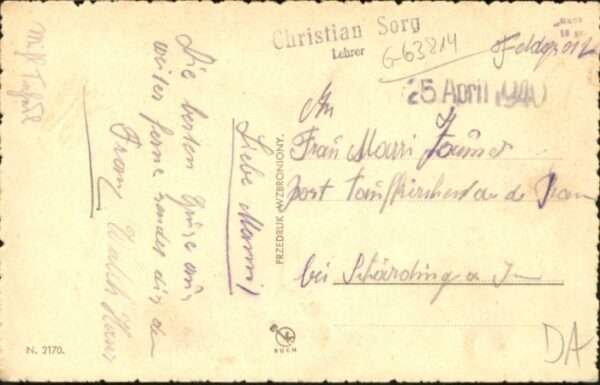 Christian Sorg
Lehrer
G 63814
Feldpost
25 April 1940
An
Frau Marri
post Taufkirchen a d Pram
bei Schärding a. Inn
Liebe Manni!
Die besten Grüße aus
weiter ferne sendet dir dein
Franz
PRZEDRUK WZBRONIONY.
RUCH
N. 2170.
DA